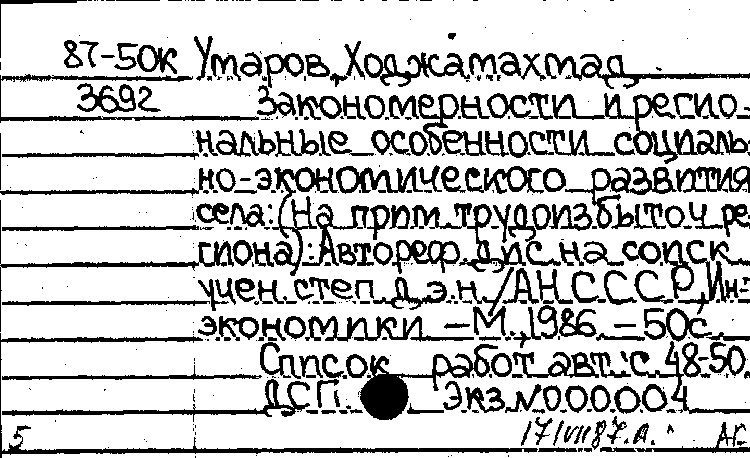 87-50к Умаров, Ходжамахмад
3692 Закономерности и регио-
нальные особенности социаль
но-экономического развития
села: (На прим. трудоизбыточ. ре
гиона): Автореф. дис. на соиск.
учен. степ. д.э.н. /АН СССР, Ин-
экономики. – М., 1986. – 50с.
Список работ авт.: с. 48-50
ДСП. Экз. N000004
5 17/VII 87.